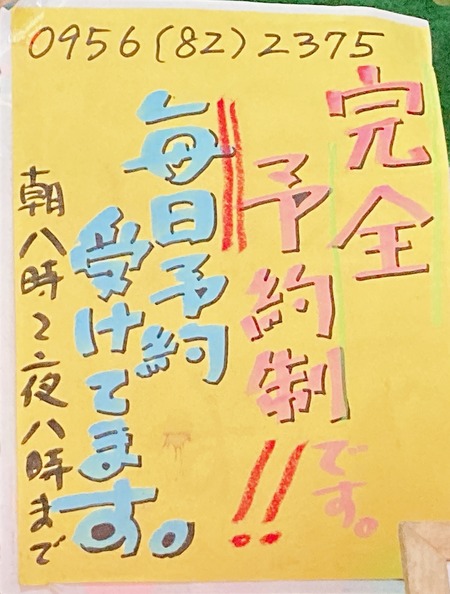 0956(82)2375
完全
予約制です。!!
毎日予約
受けてます。
朝八時~夜八時まで